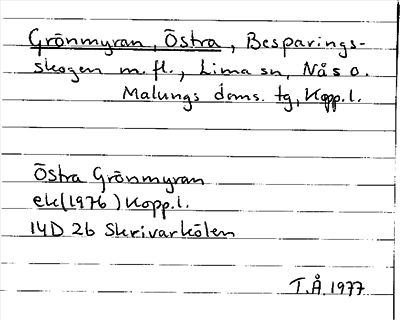 Grönmyran, Östra, Besparings-
skogen m.fl., Lima sn, Nås o.
Malungs doms. tg, Kopp.l.
Östra Grönmyran
ek(1976) Kopp.l.
14D 2b Skrivarkölen
T.Å.1977